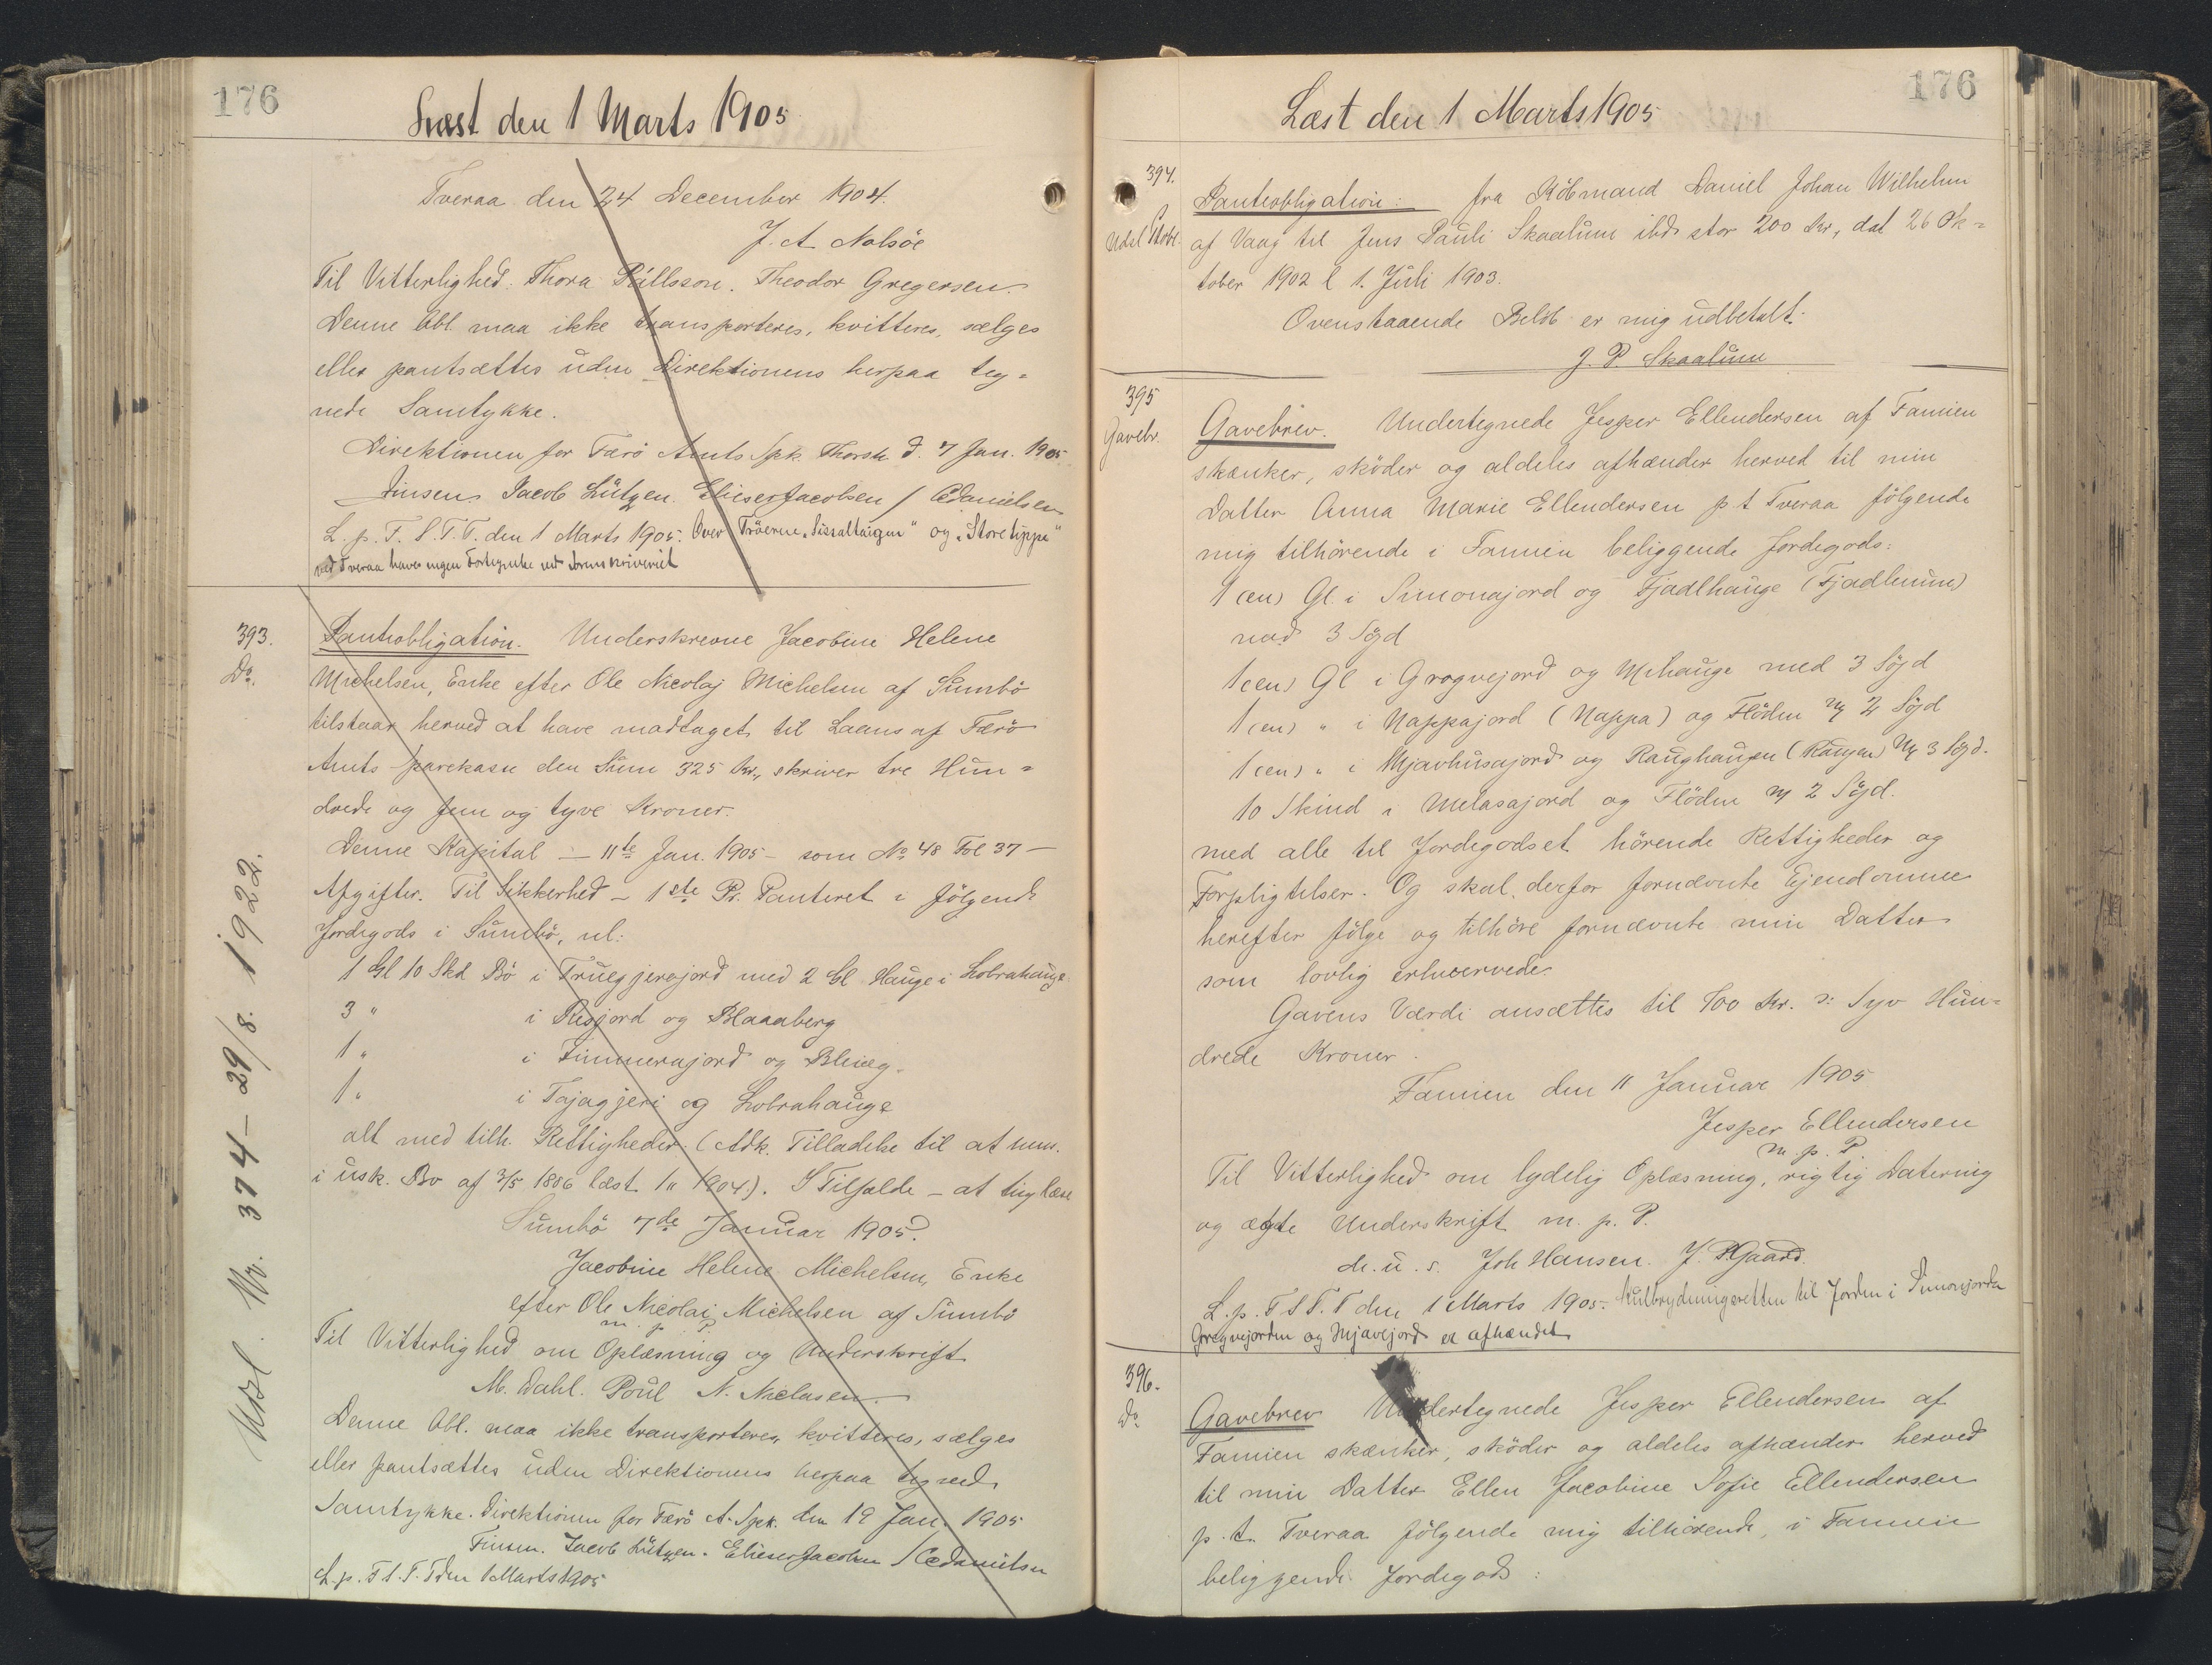 176
Læst den 1 Marts 1905
Tveraa den 24 December 1904.
J. A Nolsöe
Til Vitterlighed: Thora Pállsson. Theodor Gregersen.
Denne Obl. maa ikke transporteres, kvitteres, sælges
eller pantsættes uden Direktionens herpaa teg-
nede Samtykke.
Direktionen for Færö Amts Spk. Thorsh. d. 7 Jan. 1905.
Finsen Jacob Lützen. Elieser Jacobsen / CDanielsen
L. p. F. S. T. T. den 1 Marts 1905. Over Tröerne "Sissaltaigur" og "Storetippe"
ved Tveraa haves ingen Fortegnelse ved Sorenskriveriet
393.
Do.
Pantobligation. Underskrevne Jacobine Helene
Michelsen, Enke efter Ole Nicolaj Michelsen af Sumbö
tilstaar herved at have modtaget til Laans af Færö
Amts Sparekasse den Sum 325 Kr., skriver tre Hun-
drede og fem og tyve Kroner.
Denne Kapital – 11te Jan. 1905 – som No 48 Fol 37 –
Afgifter. Til Sikkerhed – 1ste Pr. Panteret i fölgende
Jordegods i Sumbö, nl:
1 Gl 10 Skd Bö i Truegjerajord med 2 Gl Hauge i Lobrahauge
3 " i Risjord og Blaaaberg
1 " i Timmernajord og Bleieg.
1 " i Tajagjeri og Lobrahauge
alt med tilh. Rettigheder. (Adk. Tilladelse til at hens.
i usk. Bo af 3/5 1886 læst 1/11 1904). I Tilfælde – at tinglæse
Sumbö 7de Januar 1905.
Jacobine Helene Michelsen, Enke
efter Ole Nicolai Michelsen af Sumbö
m. p. P.
Til Vitterlighed om Oplæsning og Underskrift
M. Dahl. Poul N. Niclasen.
Denne Obl. maa ikke transporteres, kvitteres, sælges
eller pantsættes uden Direktionens herpaa tegnede
Samtykke. Direktionen for Færö A. Spk. den 19 Jan. 1905
Finsen. Jacob Lützen. Elieser Jacobsen / CDanielsen
L. p. F. S. T. T den 1 Marts 1905
Udsl. Nr. 374 – 29/8. 1922.
176
Læst den 1 Marts 1905
394.
Udsl Pobl.
Pantobligation: fra Köbmand Daniel Johan Wilhelm
af Vaag til Jens Pauli Skaalum ibd. stor 200 Kr, dat 26 Ok-
tober 1902 l 1. Juli 1903.
Ovenstaaende Belöb er mig udbetalt.
J. P. Skaalum
395
Gavebr.
Gavebrev. Undertegnede Jesper Ellendersen af Famien
skænker, sköder og aldeles afhænder herved til min
Datter Anna Marie Ellendersen p t Tveraa fölgende
mig tilhörende i Famien beliggende Jordegods:
1 (en) Gl. i Simonajord og Fjadlhauge (Fjadlenum)
med 3 Söjd
1 (en) Gl i Grogvejord og Mihauge med 3 Söjd
1 (en) " i Nappajord (Nappa) og Flöden m 2 Söjd
1 (en) " i Mjavhusajord og Raughaugen (Raugen) m 3 Söjd.
10 Skind i Melasajord og Flöden m 2 Söjd.
med alle til Jordegodset hörende Rettigheder og
Forpligtelser. Og skal derfor fornævnte Ejendomme
herefter fölge og tilhöre fornævnte min Datter
som lovlig erhvervede.
Gavens Værdi ansættes til 700 Kr. ɔ: Syv Hun-
drede Kroner.
Famien den 11 Januar 1905
Jesper Ellendersen
m. p. P.
Til Vitterlighed om lydelig Oplæsning, rigtig Datering
og ægte Underskrift m. p. P.
d. u. s. Joh Hansen. J. PGaard.
L. p. F S T. T den 1 Marts 1905. Kulbrydningsretten til Jorden i Simonsjorden
Grogvejorden og Mjavejord er afhændet
396.
Do
Gavebrev Undertegnede Jesper Ellendersen af
Famien skænker, sköder og aldeles afhænder herved
til min Datter Ellen Jacobine Sofie Ellendersen
p. t. Tveraa fölgende mig tilhörende, i Famien
beliggende Jordegods: